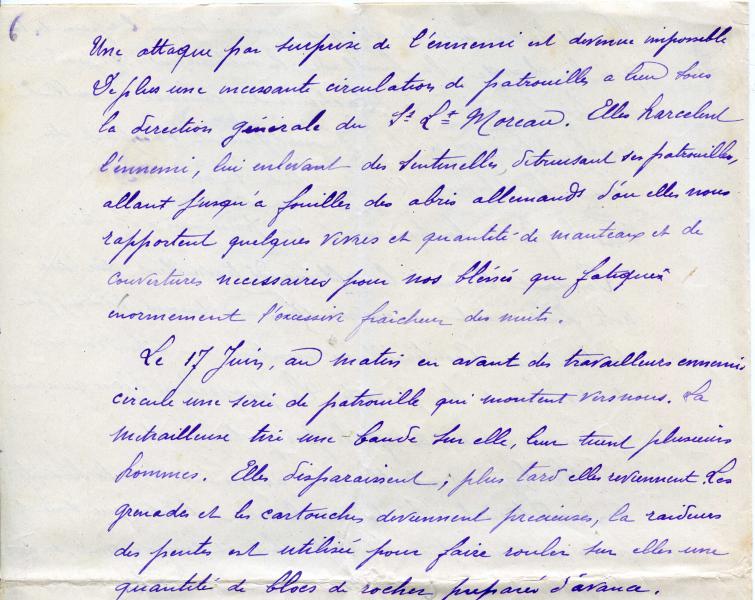 6
Une attaque par surprise de l'ennemi est devenue impossible
De plus une incessante circulation de patrouilles a lieu sous
la direction générale du St Lt Moreau. Elles harcelent
l'ennemi, lui enlevant des sentinelles, detruisant ses patrouilles,
allant jusqu'a fouiller des abris allemands d'ou elles nous
rapportent quelques vivres et quantité de manteaux et de
couvertures necessaires pour nos bléssés que fatiguent
énormement l'excessive fraîcheur des nuits.
Le 17 Juin, au matin en avant des travailleurs ennemis
circule une serie de patrouille qui montent vers nous. La
mitrailleuse tire une bande sur elle, leur tuent plusieurs
hommes. Elles disparaissent ; plus tard elles reviennent. Les
grenades et les cartouches deviennent precieuses, la raideurs
des pentes est utilisée pour faire rouler sur elles une
quantité de blocs de rocher preparés d'avance.